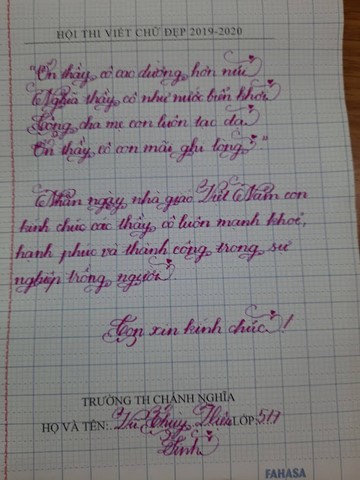 HỘI THI VIẾT CHỮ ĐẸP 2019-2020
"Ơn thầy cô cao dường hơn núi
Nghĩa thầy cô như nước biển khơi
Công cha mẹ con luôn tạc dạ
Ơn thầy cô con mãi ghi lòng."
Nhân ngày nhà giáo Việt Nam con
kính chúc các thầy cô luôn mạnh khoẻ,
hạnh phúc và thành công trong sự
nghiệp trồng người.
Con xin kính chúc!
TRƯỜNG TH CHÁNH NGHĨA
HỌ VÀ TÊN: Vũ Thùy LỚP 5/7
FAHASA